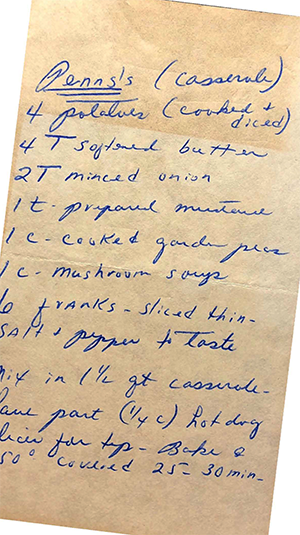 Penns's (casserole)
4 potatoes (cooked +
diced)
4 T softened butter
2T minced onion
1 t. prepared mustard
1 c - cooked garden peas
1 c - mushroom soup
6 franks - sliced thin -
salt + pepper to taste
mix in 1 1/2 qt casserole -
ave part (1/4 c) hot dog
lices for top - Bake @
50° covered 25 - 30 min -